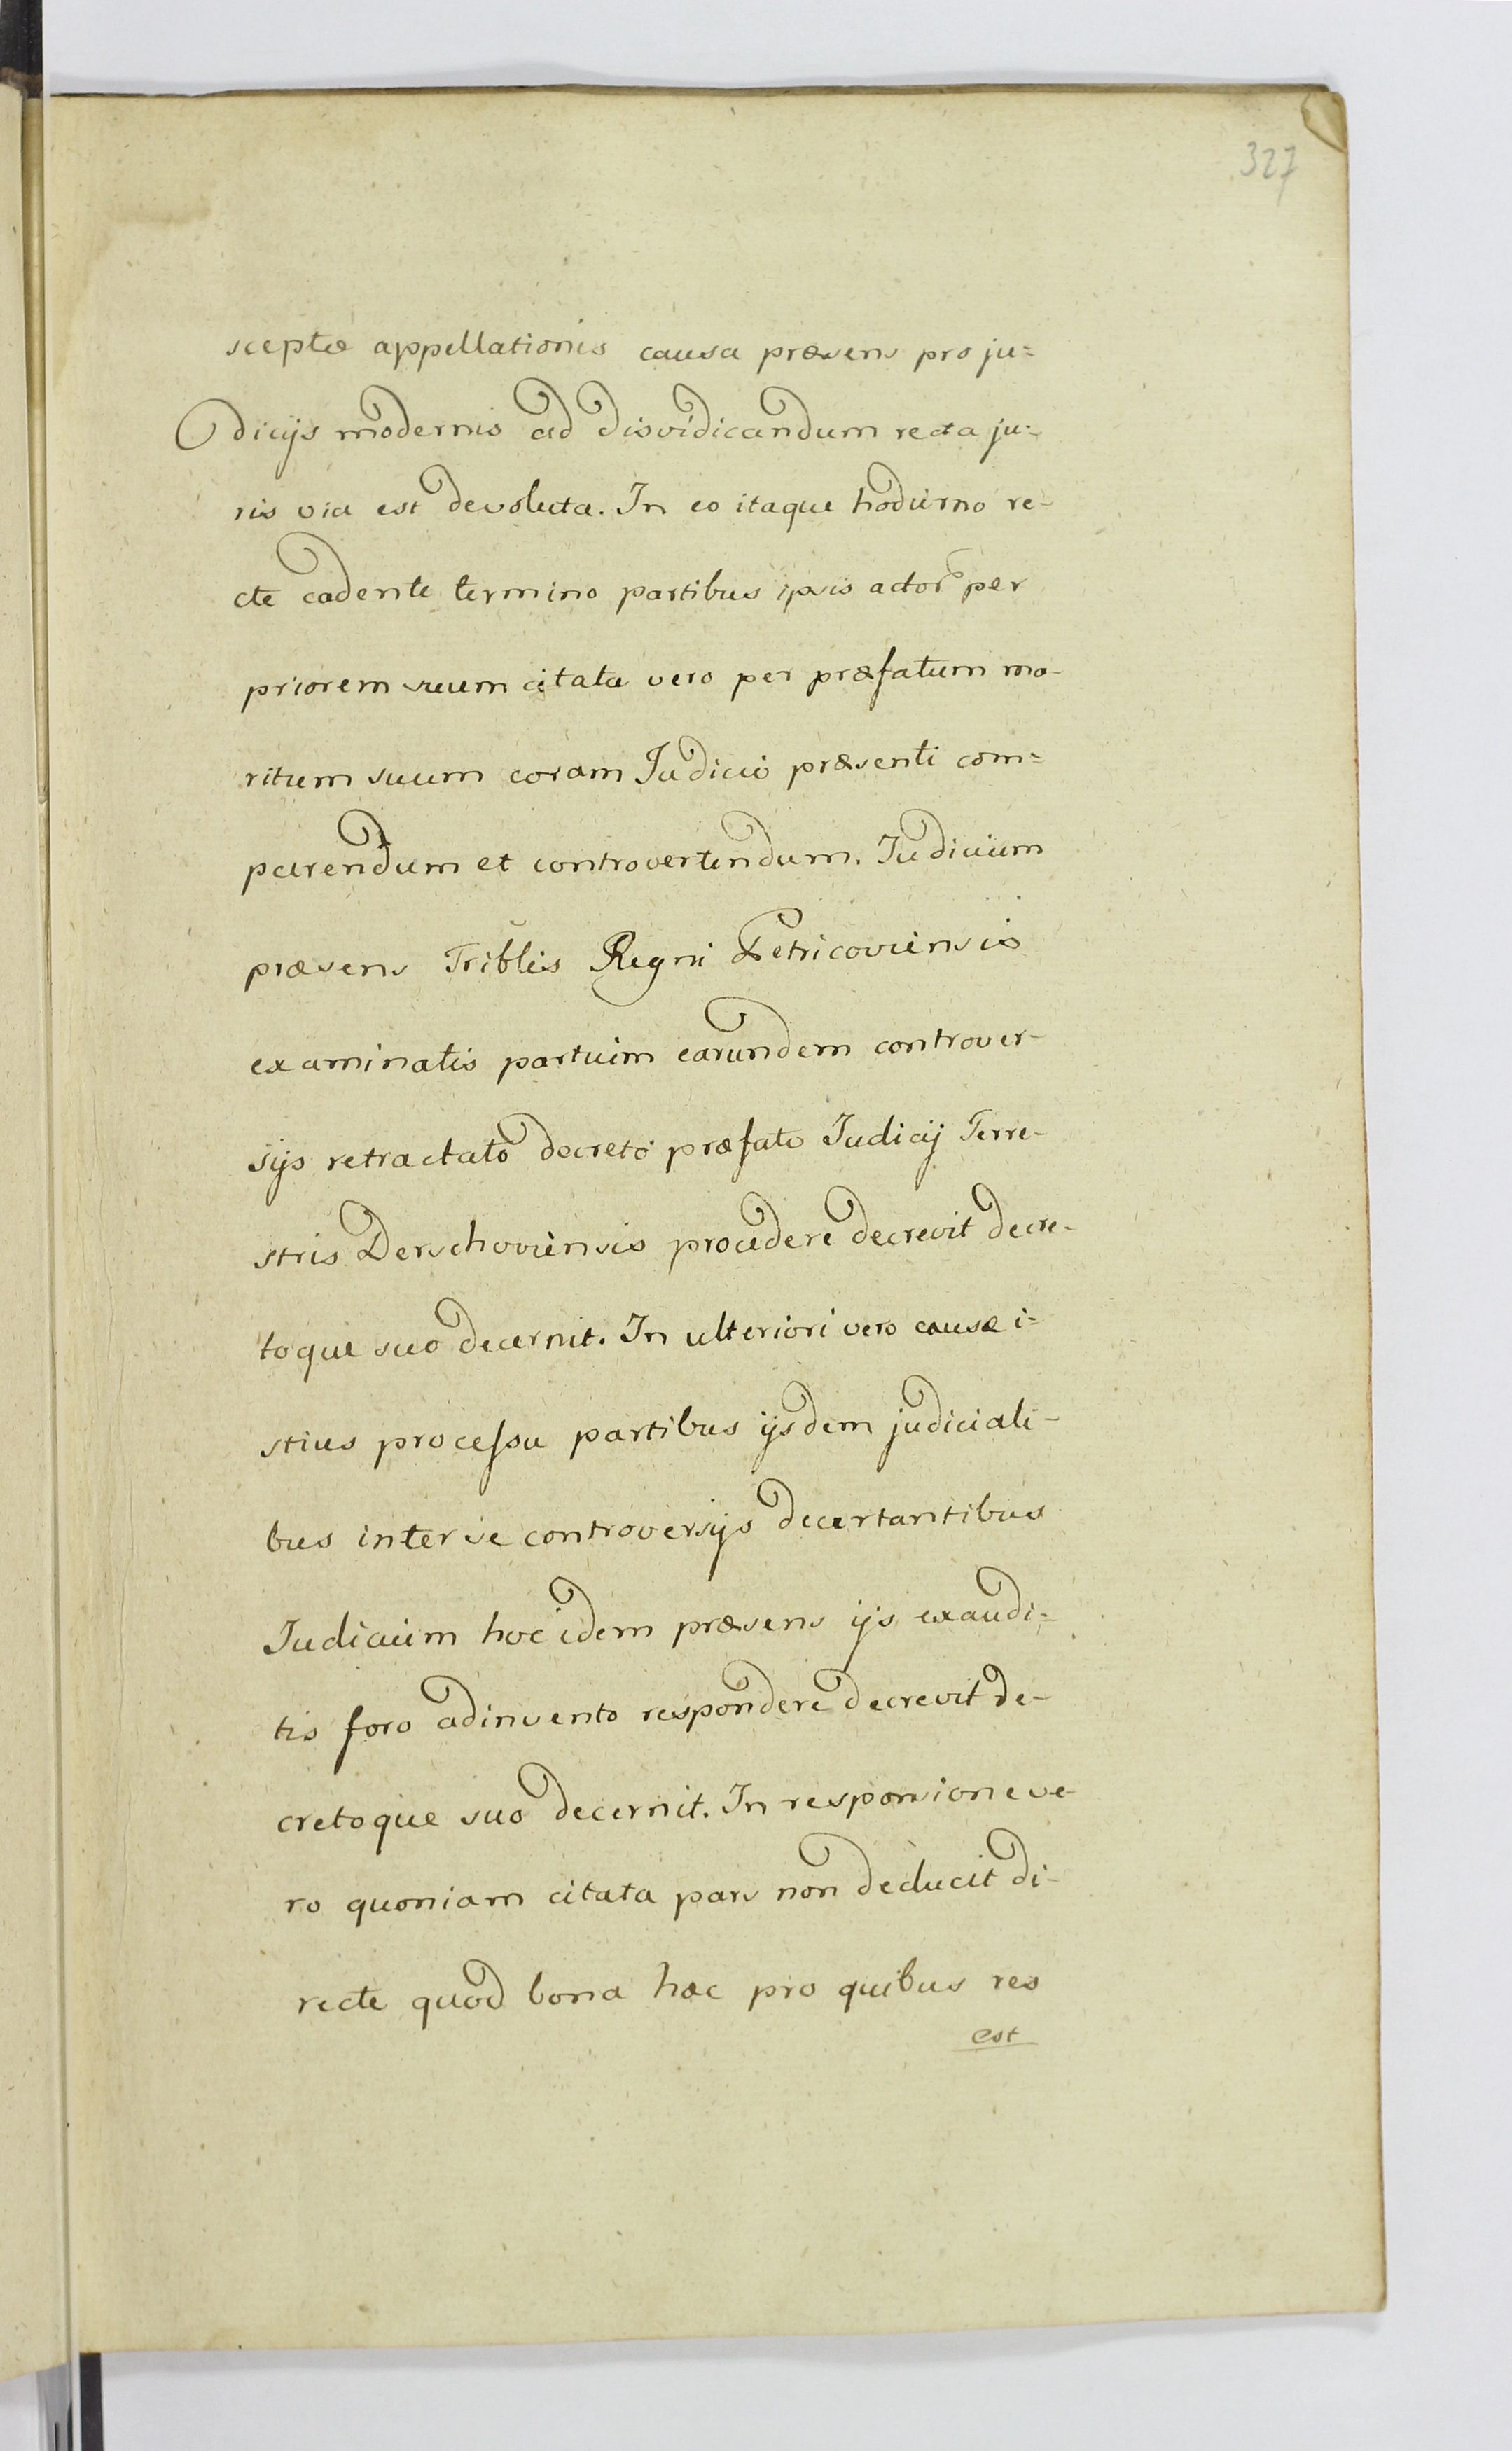 327
sceptæ appellationis causa præsens pro ju=
dicijs modernis ad disvidicandum recta ju=
ris via est devoluta. In eo itaque hodierno re-
cte cadente termino partibus ipsis actor per
priorem suum citata vero per præfatum ma-
ritum suum coram Judicio præsenti com=
parendum et controvertendum. Judicium
præsens Triblis Regni Petricoviensis
examinatis partium earundem controver-
sijs retractato decreto præfato Judicij Terre-
stris Derschoviensis procedere decrevit decre-
toque suo decernit. In ulteriori vero causæ i=
stius processu partibus ijsdem judiciali-
bus inter se controversijs decertantibus
Judicium hoc idem præsens ijs exaudi=
tis foro adinvento respondere decrevit de-
cretoque suo decernit. In responsione ve-
ro quoniam citata pars non deducit di-
recte quod bona hæc pro quibus res
est